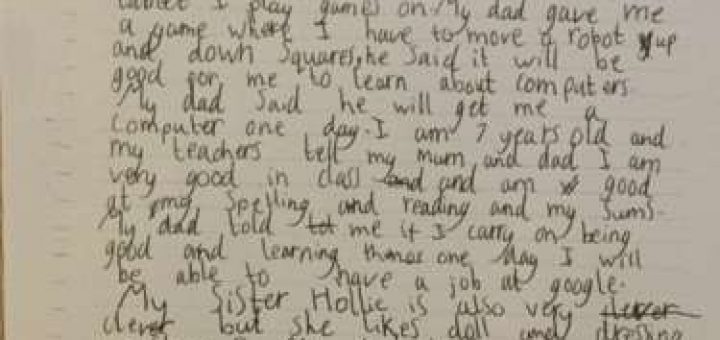 tablet I play games on. My dad gave me
a game where I have to move a robot up
and down squares, he said it will be
good for me to learn about computers
My dad said he will get me a
computer one day. I am 7 years old and
my teachers tell my mum and dad I am
very good in class and and am good
at my spelling and reading and my sums.
My dad told me if I carry on being
good and learning things one day I will
be able to have a job at google.
My sister Hollie is also very clever
clever but she likes doll and dressing